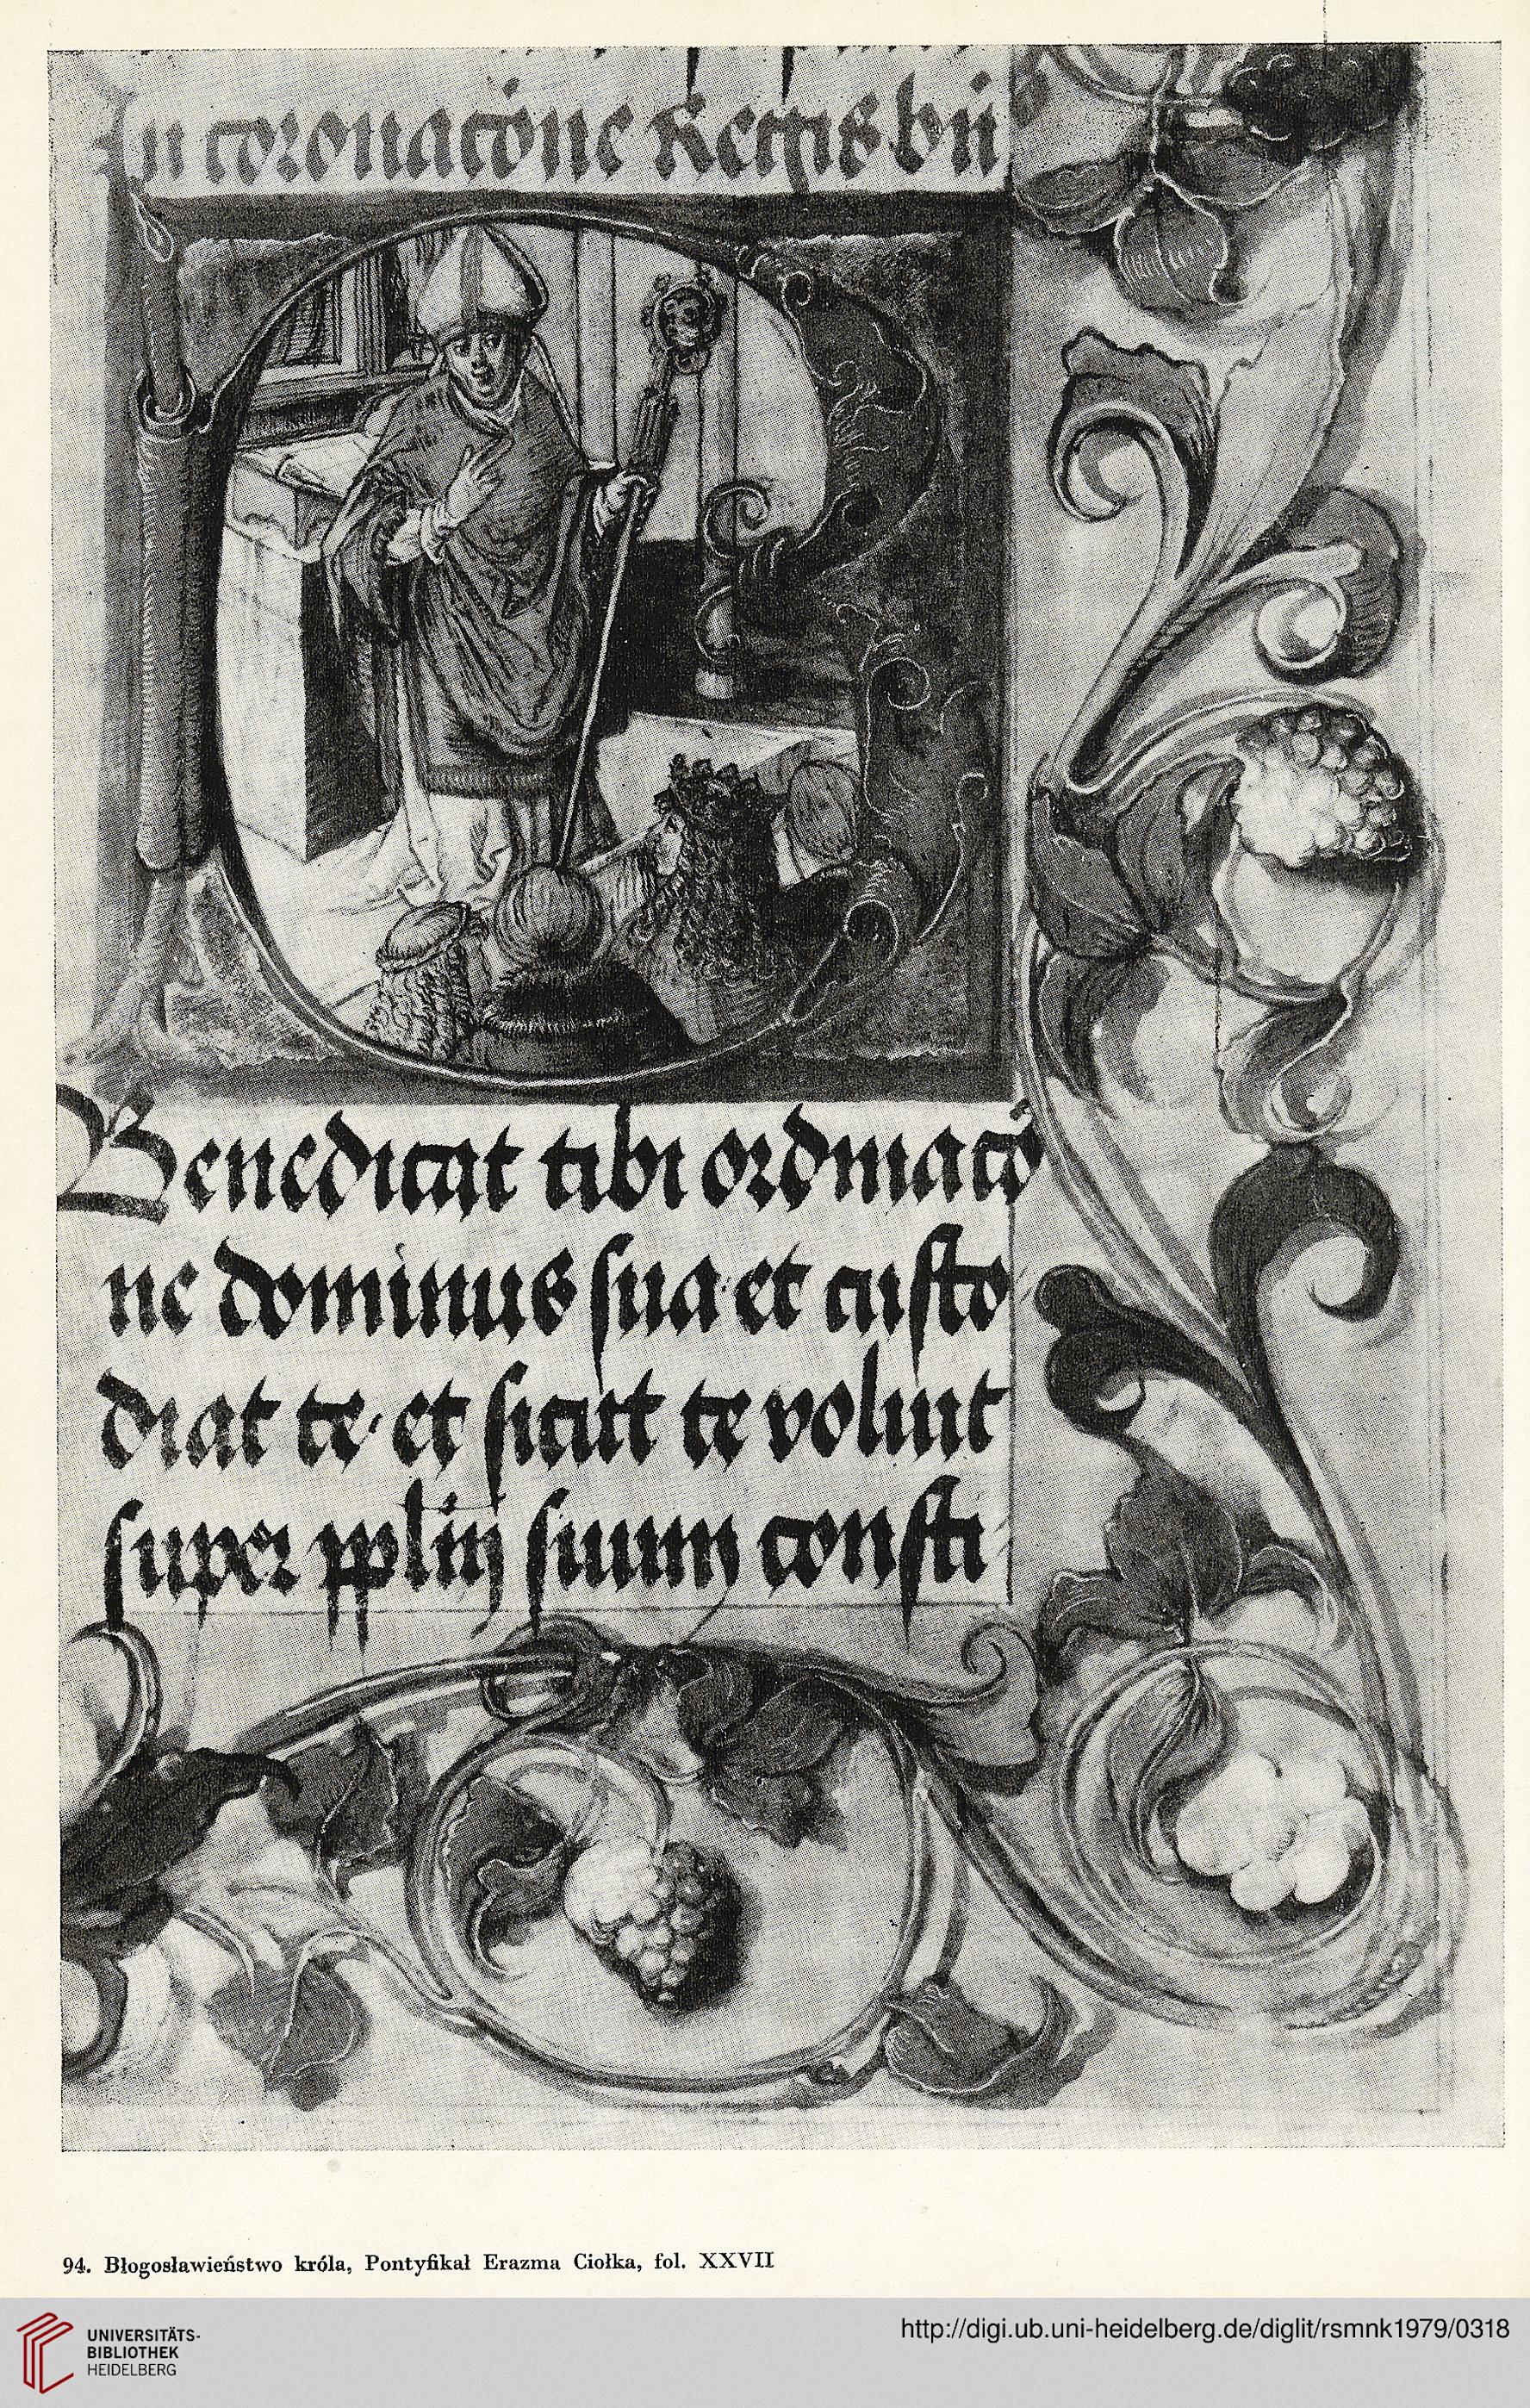 In coronacōne Regis bn̄
Benedicat tibi ordinacō
ne dominus sua et custo
diat te et sicut te voluit
super pplūȝ suum consti
94. Błogosławieństwo króla, Pontyfikał Erazma Ciołka, fol. XXVII
UNIVERSITÄTS-
BIBLIOTHEK
HEIDELBERG
http://digi.ub.uni-heidelberg.de/diglit/rsmnk1979/0318